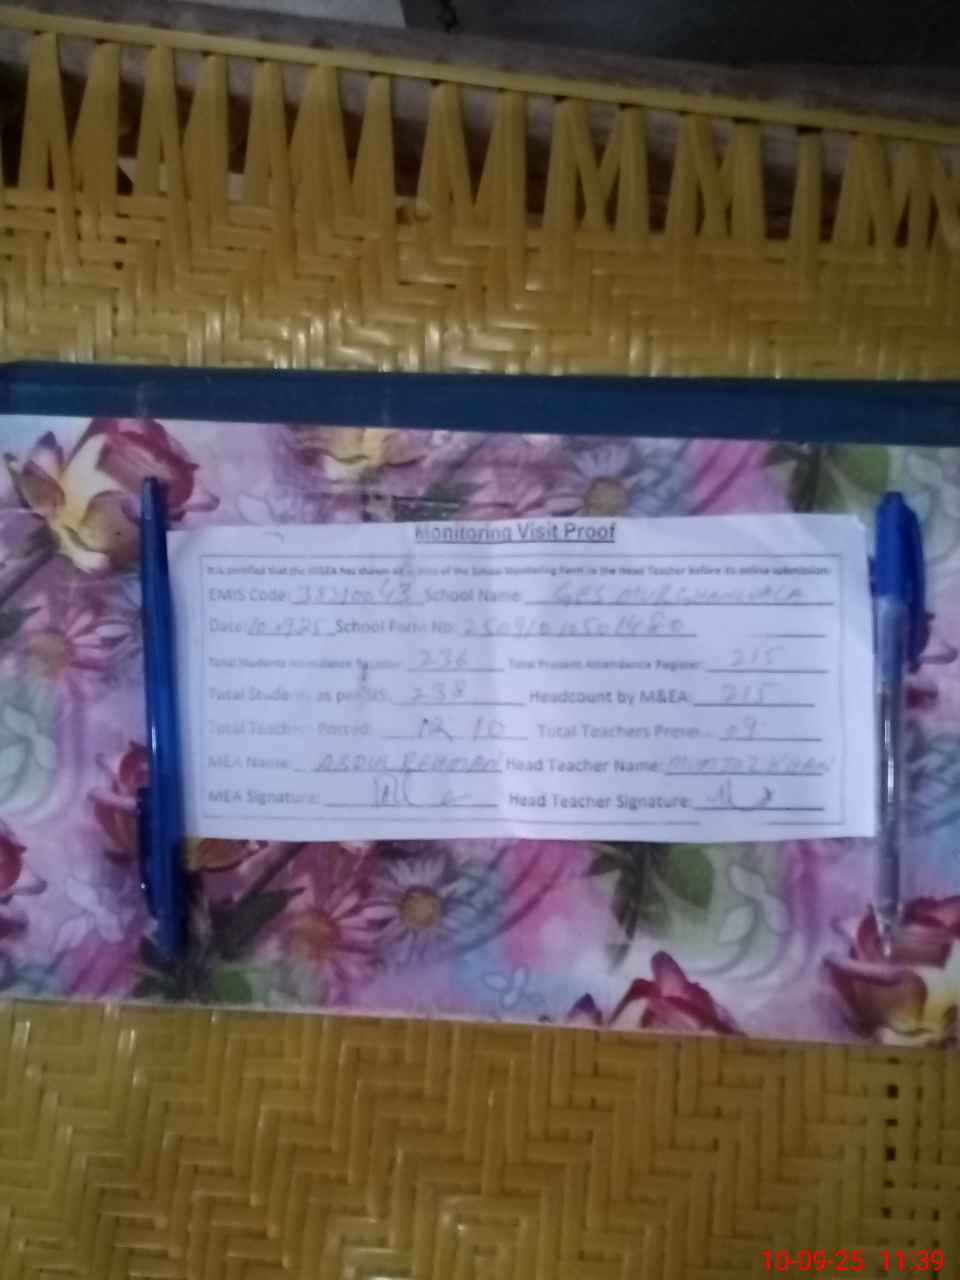 Monitoring Visit Proof
It is certified that the MEA has shown of the School Monitoring Form to the Head Teacher before its online submission.
EMIS Code: 38310043 School Name: GES
Date: 10.9.25 School Form No: 25091010501480
Total Students Attendance Register: 236 Total Present Attendance Register: 215
Total Students as per SIS: 238 Headcount by M&EA: 215
Total Teachers Posted: 10 Total Teachers Present: 09
MEA Name: ABDUL REHMAN Head Teacher Name: MUMTAZ KHAN
MEA Signature: Head Teacher Signature:
10-09-25 11:39